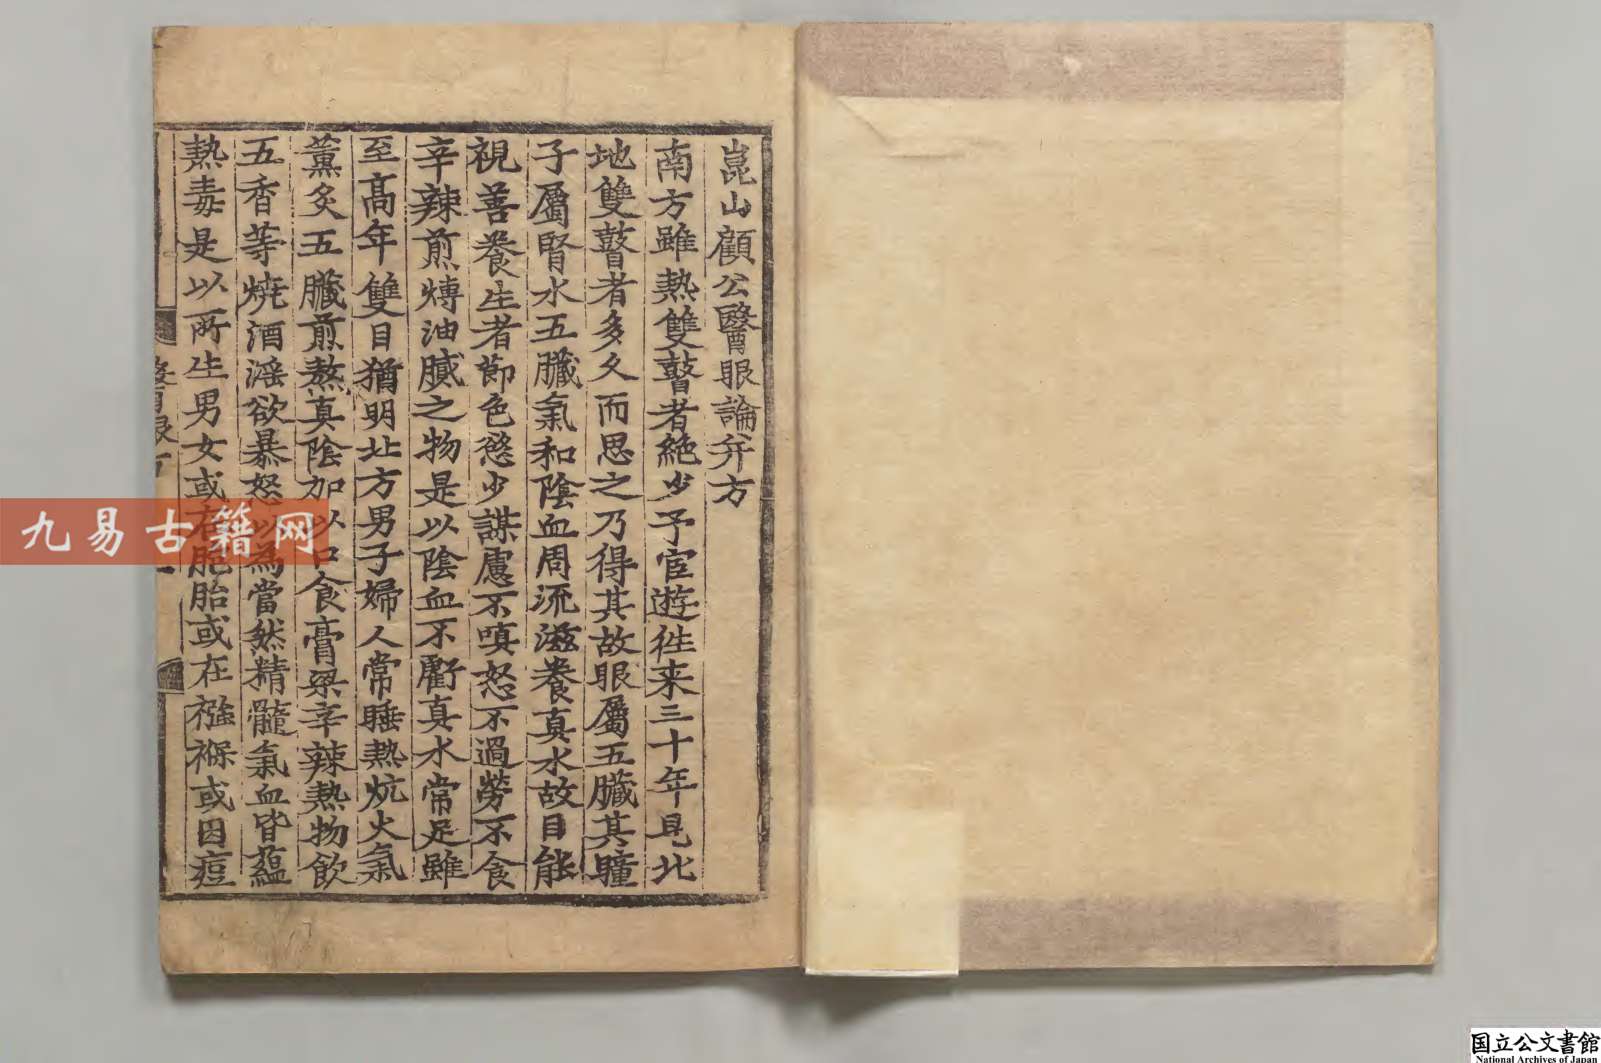 崑山顧公醫眼論并方
南方雖熱雙瞽者絶少予宦遊徃来三十年見北
地雙瞽者多久而思之乃得其故眼屬五臓其瞳
子屬腎水五臓氣和陰血周流滋養真水故目能
視善養生者節色慾少謀慮不嗔怒不過勞不食
辛辣煎煿油膩之物是以陰血不虧真水常足雖
至高年雙目猶明北方男子婦人常睡熱炕火氣
薰炙五臓煎熬真陰加以口食膏梁辛辣熱物飲
五香等燒酒滛欲暴怒以為當然精髓氣血皆蘊
熱毒是以所生男女或在胞胎或在襁褓或因痘
九易古籍网
国立公文書館
National Archives of Japan